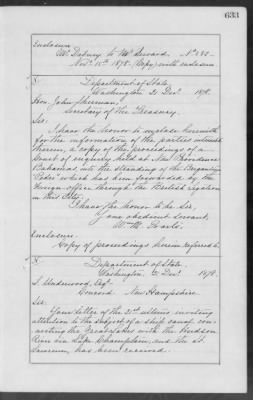 633
Enclosure.
Mr. Dabney to Mr. Seward. No. 282
Nov. 15th 1878. (Copy) with enclosure
Department of State.
Washington 21 Decr. 1878.
Hon. John Sherman,
Secretary of the Treasury.
Sir:
I have the honor to enclose herewith
for the information of the parties interested
therein, a copy of the proceedings of a
Court of enquiry held at New Providence
Bahamas into the stranding of the Brigantine
which has been forwarded by the
Foreign office through the British legation
in this City.
I have the honor to be, Sir,
Your obedient servant,
Wm. M. Evarts.
Enclosure.
Copy of proceedings herein referred to.
Department of State
Washington, 21 Decr. 1878.
Underwood, Esqr.
Concord. New Hampshire.
Sir:
Your letter of the 21st ultimo inviting
attention to the subject of a ship canal con-
necting the Great Lakes with the Hudson
River via Lake Champlain, and the St.
Lawrence, has been received.